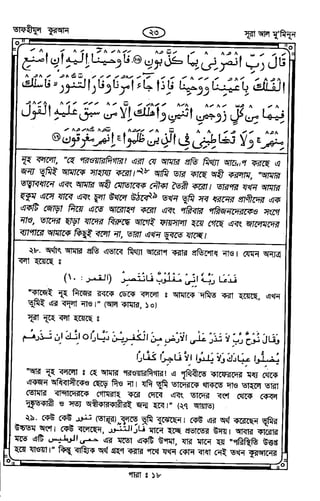 তাফহীমুল কুরআন
২৩
সূরা আল মু'মিনূন
قَالَ رَبِّ انْصُرْنِي بِمَا كَذَّبُونِ ۝ فَأَوْحَيْنَا إِلَيْهِ أَنِ اصْنَعِ
الْفُلْكَ بِأَعْيُنِنَا وَوَحْيِنَا فَإِذَا جَاءَ أَمْرُنَا وَفَارَ التَّنُّورُ ۙ فَاسْلُكْ
فِيهَا مِنْ كُلٍّ زَوْجَيْنِ اثْنَيْنِ وَأَهْلَكَ إِلَّا مَنْ سَبَقَ عَلَيْهِ الْقَوْلُ
مِنْهُمْ ۚ وَلَا تُخَاطِبْنِي فِي الَّذِينَ ظَلَمُوا ۚ إِنَّهُمْ مُغْرَقُونَ ۝
নূহ বললো, "হে পরওয়ারদিগার! এরা যে আমার প্রতি মিথ্যা আরোপ করছে এ
জন্য তুমিই আমাকে সাহায্য করো।"২৮ আমি তার কাছে অহী করলাম, "আমার
তত্ত্বাবধানে এবং আমার অহী মোতাবেক নৌকা তৈরী করো। তারপর যখন আমার
হুকুম এসে যাবে এবং চুলা উথলে উঠবে২৯ তখন তুমি সব ধরনের প্রাণীদের এক
একটি জোড়া নিয়ে এতে আরোহণ করো এবং পরিবার পরিজনদেরকেও সংগে
নাও, তাদের ছাড়া যাদের বিরুদ্ধে আগেই ফায়সালা হয়ে গেছে এবং জালেমদের
ব্যাপারে আমাকে কিছুই বলো না, তারা এখন ডুবতে যাচ্ছে।
২৮. অর্থাৎ আমার প্রতি এভাবে মিথ্যা আরোপ করার প্রতিশোধ নাও। যেমন অন্যত্র
বলা হয়েছে ঃ
فَدَعَا رَبَّهُ أَنِّي مَغْلُوبٌ فَانْتَصِرْ (القمر : ١٠)
"কাজেই নূহ নিজের রবকে ডেকে বললো ঃ আমাকে দমিত করা হয়েছে, এখন
তুমিই এর বদলা নাও।" (আল কামার, ১০)
সূরা নূহে বলা হয়েছে ঃ
وَقَالَ نُوحٌ رَّبِّ لَا تَذَرْ عَلَى الْأَرْضِ مِنَ الْكٰفِرِينَ دَيَّارًا ۝ إِنَّكَ إِنْ تَذَرْهُمْ
يُضِلُّوا عِبَادَكَ وَلَا يَلِدُوا إِلَّا فَاجِرًا كَفَّارًا
"আর নূহ বললো ঃ হে আমার পরওয়ারদিগার! এ পৃথিবীতে কাফেরদের মধ্য থেকে
একজন অধিবাসীকেও ছেড়ে দিও না। যদি তুমি তাদেরকে থাকতে দাও তাহলে তারা
তোমার বান্দাদেরকে গোমরাহ করে দেবে এবং তাদের বংশ থেকে কেবল
দুষ্কৃতকারী ও সত্য অস্বীকারকারীরই জন্ম হবে।" (২৭ আয়াত)
২৯. কেউ কেউ تنور (তান্নূর) বলতে ভূমি বুঝেছেন। কেউ এর অর্থ করেছেন ভূমির
উচ্চতম অংশ। কেউ বলেছেন, فار التنور মানে হচ্ছে প্রভাতের উদয়। আবার কারোর
মতে এটি حمى الوطيس এর মতো একটি উপমা, যার মানে হয় "পরিস্থিতি উত্তপ্ত
হয়ে যাওয়া।" কিন্তু বাহ্যিক অর্থ গ্রহণ করার পথে যখন কোন বাধা নেই তখন কুরআনের
পারা ঃ ১৮